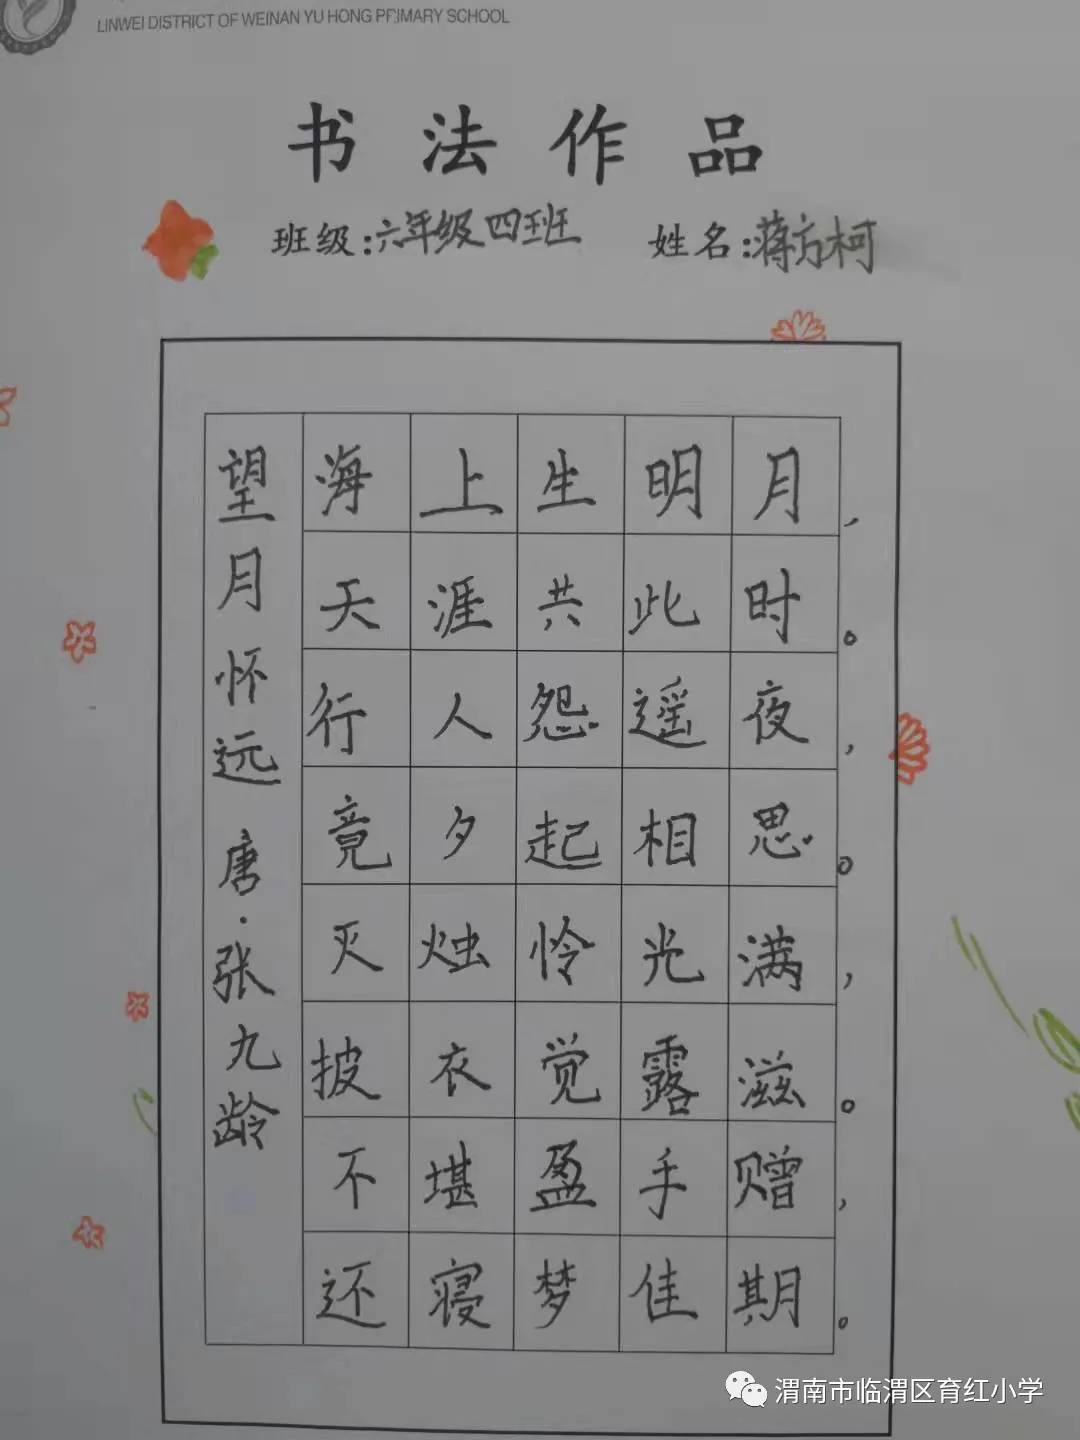 LINWEI DISTRICT OF WEINAN YU HONG PRIMARY SCHOOL
书法作品
班级:六年级四班 姓名:蒋方柯
望月怀远 唐·张九龄
海上生明月，
天涯共此时。
行人怨遥夜，
竟夕起相思。
灭烛怜光满，
披衣觉露滋。
不堪盈手赠，
还寝梦佳期。
渭南市临渭区育红小学